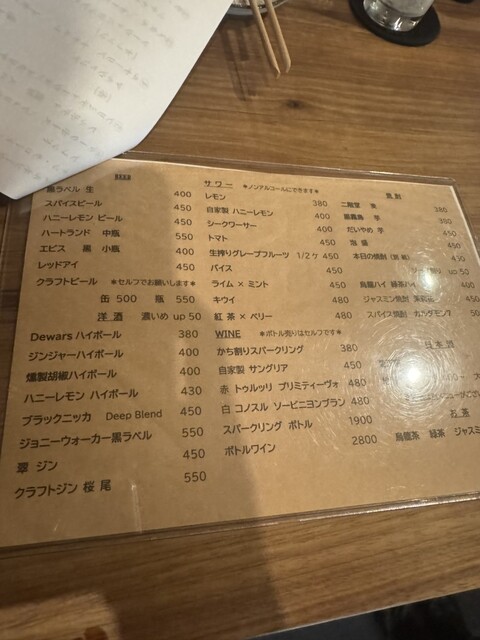 BEER
黒ラベル 生 400
スパイスビール 450
ハニーレモン ビール 450
ハートランド 中瓶 550
エビス 黒 小瓶 400
レッドアイ 450
クラフトビール ＊セルフでお願いします＊
缶 500 瓶 550
洋 酒 濃いめ up 50
Dewars ハイボール 380
ジンジャーハイボール 400
燻製胡椒ハイボール 400
ハニーレモン ハイボール 430
ブラックニッカ Deep Blend 450
ジョニーウォーカー黒ラベル 550
翠 ジン 450
クラフトジン 桜 尾 550
サ ワ ー ＊ノンアルコールにできます＊
レモン 380
自家製 ハニーレモン 400
シークワーサー 400
トマト 450
生搾りグレープフルーツ 1/2ヶ 450
バイス 450
ライム × ミント 450
キウイ 480
紅 茶 × ベリー 480
WINE ＊ボトル売りはセルフです＊
かち割りスパークリング 380
自家製 サングリア 450
赤 トゥルッリ プリミティーヴォ 480
白 コノスル ソービニヨンブラン 480
スパークリング ボトル 1900
ボトルワイン 2800
二階堂 麦 380
芋 380
だいやめ 芋 450
泡 盛 450
本日の焼酎 450
up 50
烏龍ハイ 緑茶ハイ
ジャスミン焼酎 茉莉花 450
スパイス焼酎 500
日 本 酒
お 茶
烏龍茶 緑茶 ジャスミ